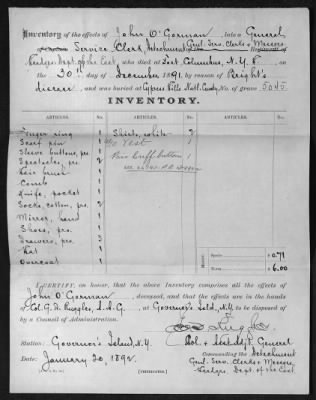 Inventory of the effects of John O'Gorman, late a General
Service Clerk, Detachment Genl. Serv. Clerks & Messrs.
Hedqrs. Dept. of the East, who died at Fort Columbus, N.Y. H.
on the 30th day of December 1891, by reason of Bright's
disease, and was buried at Cypress Hills Natl. Cemty. No. of grave 5045
INVENTORY.
ARTICLES. No. ARTICLES. No. ARTICLES. No.
Finger ring 1 Shirts, white 2
Scarf pin 1 Vest 1
Sleeve buttons, pr. 1 Pair Cuff buttons 1
Spectacles, pr. 2
Hair brush 1
Comb 1
Knife, pocket 1
Socks, cotton, pr. 2
Mirror, hand 1
Shoes, pr. 1
Drawers, pr. 3
Hat 1
Overcoat 1
Money $ 0.79
$ 6.00
I CERTIFY, on honor, that the above Inventory comprises all the effects of
John O'Gorman, deceased, and that the effects are in the hands
of Col. G. D. Ruggles, A.A.G. at Governor's Isld., N.Y. to be disposed of
by a Council of Administration.
Station: Governor's Island, N.Y.
Col. & Asst. Adjt. General
Date: January 20, 1892.
Commanding the Detachment
Genl. Serv. Clerks & Messrs.
Hedqrs. Dept. of the East.